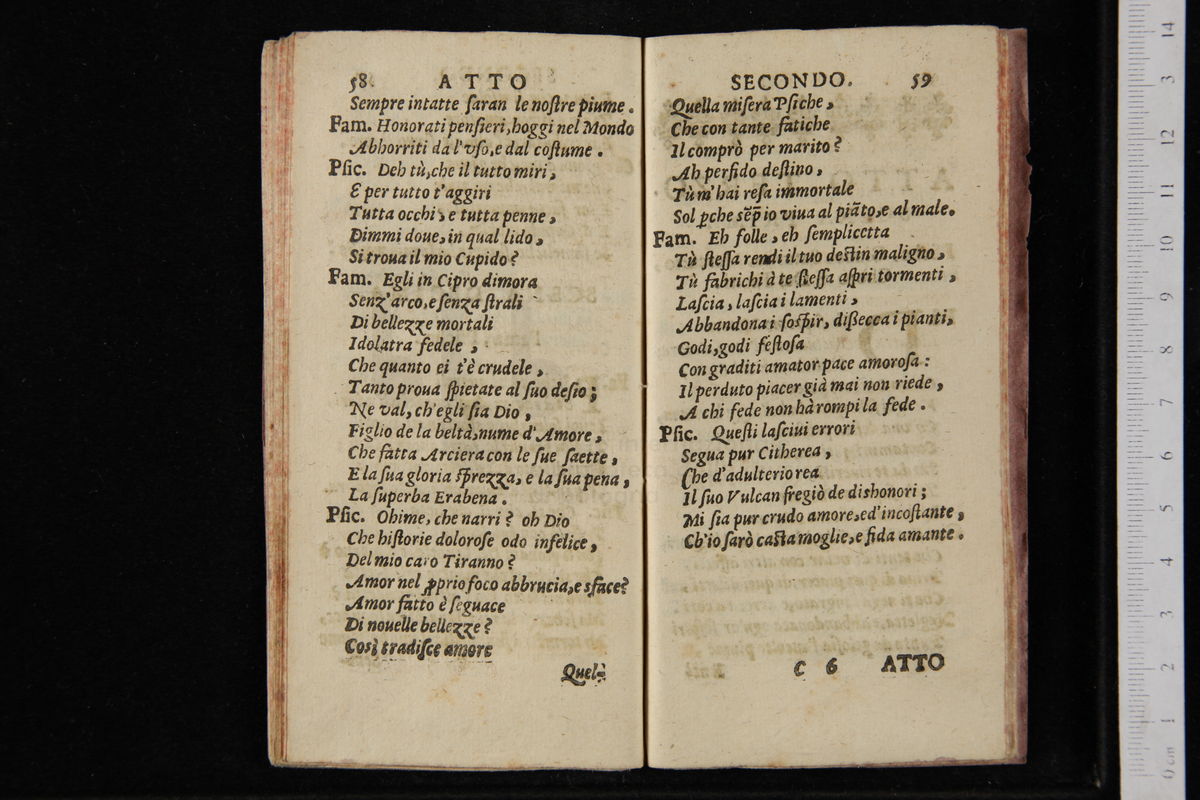 58 ATTO
Sempre intatte ſaran le noſtre piume.
Fam. Honorati penſieri, hoggi nel Mondo
Abhorriti da l'vſo, e dal coſtume.
Pſic. Deh tù, che il tutto miri,
E per tutto t'aggiri
Tutta occhi, e tutta penne,
Dimmi doue, in qual lido,
Si troua il mio Cupido?
Fam. Egli in Cipro dimora
Senz'arco, e ſenza ſtrali
Di bellezze mortali
Idolatra fedele,
Che quanto ei t'è crudele,
Tanto proua ſpietate al ſuo deſio;
Ne val, ch'egli ſia Dio,
Figlio de la beltà, nume d'Amore,
Che fatta Arciera con le ſue ſaette,
E la ſua gloria ſprezza, e la ſua pena,
La ſuperba Erabena.
Pſic. Ohime, che narri? oh Dio
Che hiſtorie doloroſe odo infelice,
Del mio caro Tiranno?
Amor nel ꝓprio foco abbrucia, e sface?
Amor fatto è ſeguace
Di nouelle bellezze?
Così tradiſce amore
Quel-
SECONDO. 59
Quella miſera Pſiche,
Che con tante fatiche
Il comprò per marito?
Ah perfido deſtino,
Tù m'hai reſa immortale
Sol ꝑche sẽp̃ io viua al piãto, e al male.
Fam. Eh folle, eh ſemplicetta
Tù ſteſſa rendi il tuo deſtin maligno,
Tù fabrichi à te ſteſſa aſpri tormenti,
Laſcia, laſcia i lamenti,
Abbandona i ſoſpir, diſſecca i pianti,
Godi, godi feſtoſa
Con graditi amator pace amoroſa:
Il perduto piacer già mai non riede,
A chi fede non hà rompi la fede.
Pſic. Queſti laſciui errori
Segua pur Citherea,
Che d'adulterio rea
Il ſuo Vulcan fregiò de dishonori;
Mi ſia pur crudo amore, ed'incoſtante,
Ch'io ſarò caſta moglie, e fida amante.
C 6 ATTO
0 cm 1 2 3 4 5 6 7 8 9 10 11 12 13 14